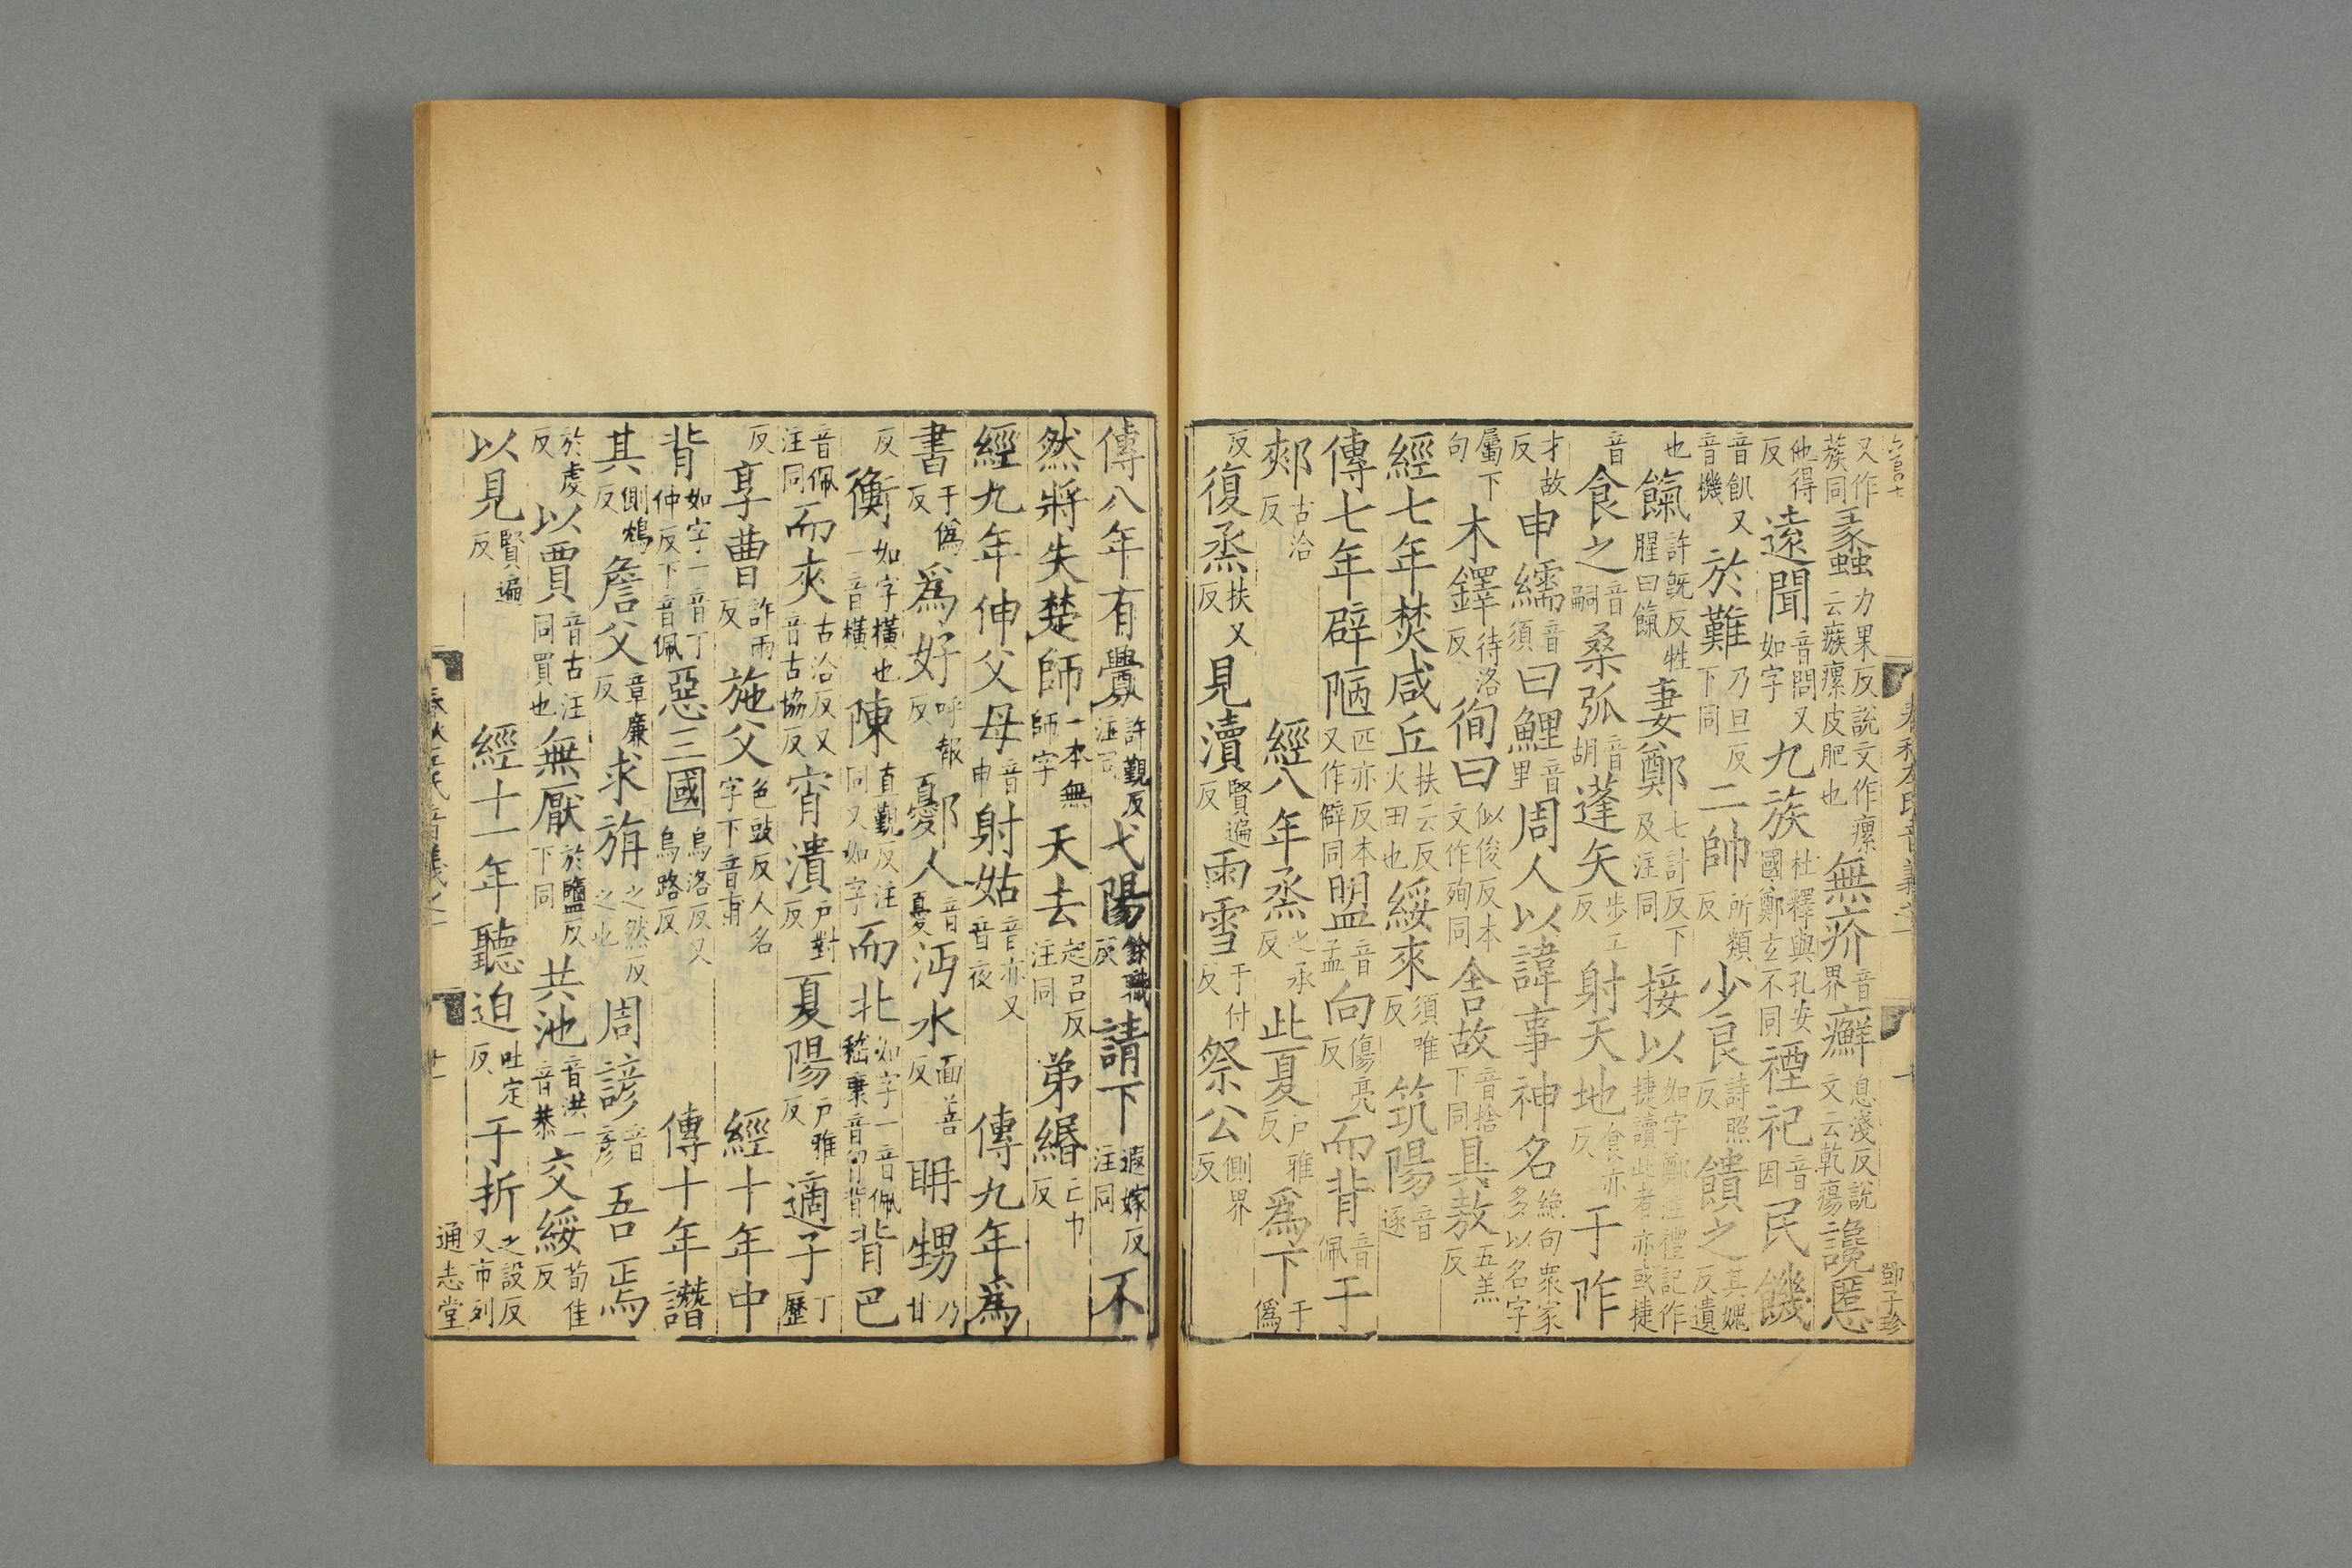 又作蔟同蠡力果反說文作瘰云瘯瘰皮肥也無疥音界癬息淺反說文云乾瘍讒慝
他得反遠聞音問又如字九族杜釋與孔安國鄭玄不同禋祀音因民饑
音飢又音機於難乃旦反下同二帥所類反少良詩照反饋之其媿反遺
也餼許旣反牲腥曰餼妻鄭七計反下及注同接以如字鄭注禮記作捷讀此者亦或捷
音食之音嗣桑弧音胡蓬矢步工反射天地食亦反于阼
才故反申繻音須曰鯉音里周人以諱事神名絶句衆家多以名字
屬下句木鐸待洛反徇曰似俊反本文作殉同舍故音捨下同具敖五羔反
經七年焚咸丘扶云反火田也綏來須唯反筑陽音逐
傳七年辟陋匹亦反本又作僻同盟音孟向傷亮反而背音佩于
郟古洽反經八年烝之承反此夏戶雅反爲下于僞
反復烝扶又反見瀆賢遍反雨雪于付反祭公側界反
春秋左氏音義之一
鄧子珍
傳八年有釁許覲反注同弋陽餘職反請下遐嫁反注同不
然將失楚師一本無師字天去起呂反注同弟緡亡巾反
經九年伸父母音申射姑音亦又音夜傳九年爲
書于僞反爲好呼報反鄾人音憂沔水面善反聃甥乃甘
反衡如字橫也一音橫陳直覲反注同又如字而北如字一音佩嵇康音胷背背巴
音佩注同而夾古洽反又音古協反宵潰戶對反夏陽戶雅反適子丁歷
反享曹許兩反施父色豉反人名字下音甫經十年中
背如字一音丁仲反下音佩惡三國烏洛反又烏路反傳十年譖
其側鴆反詹父章廉反求旃之然反之也周諺音彥吾焉
於虔反以賈音古注同買也無厭於鹽反下同共池音洪一音恭交綏荀隹反
以見賢遍反經十一年聽迫吐定反于折之設反又市列
春秋左氏音義之一
十一
通志堂